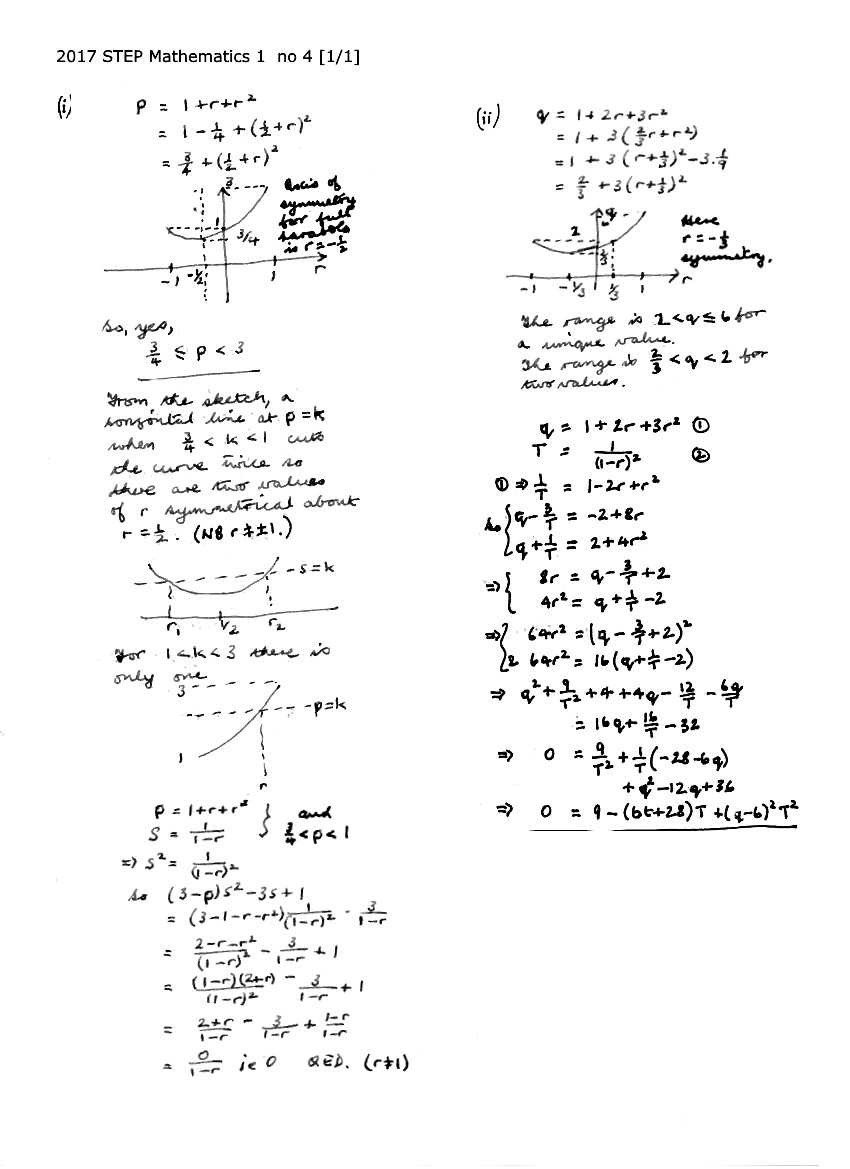 2017 STEP Mathematics 1 no 4 [1/1]
(i)
p = 1+r+r²
= 1 - 1/4 + (1/2+r)²
= 3/4 + (1/2+r)²
3
Axis of
symmetry
for full
parabola
is r = -1/2
1
3/4
-1 -1/2 1 r
So, yes,
3/4 ≤ p < 3
From the sketch, a
horizontal line at p = k
when 3/4 < k < 1 cuts
the curve twice so
there are two values
of r symmetrical about
r = 1/2. (NB r ≠ ±1.)
- s = k
r₁ 1/2 r₂
For 1 < k < 3 there is
only one
3
- p = k
1
r
p = 1+r+r² } and
S = 1/(1-r) } 3/4 < p < 1
⇒ s² = 1/(1-r)²
So (3-p)s² - 3s + 1
= (3-1-r-r²) 1/(1-r)² - 3/(1-r)
= (2-r-r²)/(1-r)² - 3/(1-r) + 1
= (1-r)(2+r)/(1-r)² - 3/(1-r) + 1
= (2+r)/(1-r) - 3/(1-r) + (1-r)/(1-r)
= 0/(1-r) ie 0 QED. (r≠1)
(ii)
q = 1+2r+3r²
= 1 + 3(2/3 r + r²)
= 1 + 3(r+1/3)² - 3.1/9
= 2/3 + 3(r+1/3)²
q
6
2
Here
r = -1/3
symmetry.
-1 -1/3 1/3 1 r
The range is 2 < q ≤ 6 for
a unique value.
The range is 2/3 < q < 2 for
two values.
q = 1+2r+3r² ①
T = 1/(1-r)² ②
① ⇒ 1/T = 1-2r+r²
So { q - 3/T = -2+8r
{ q + 1/T = 2+4r²
⇒ { 8r = q - 3/T + 2
{ 4r² = q + 1/T - 2
⇒ { 64r² = (q - 3/T + 2)²
{ & 64r² = 16(q + 1/T - 2)
⇒ q² + 9/T² + 4 + 4q - 12/T - 6q/T
= 16q + 16/T - 32
⇒ 0 = 9/T² + 1/T(-28-6q)
+ q² - 12q + 36
⇒ 0 = 9 - (6t+28)T + (q-6)²T²